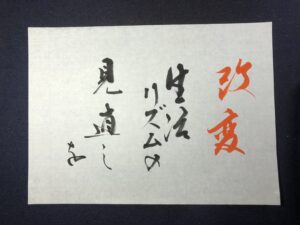 改変
生活
リズムの
見直し
を